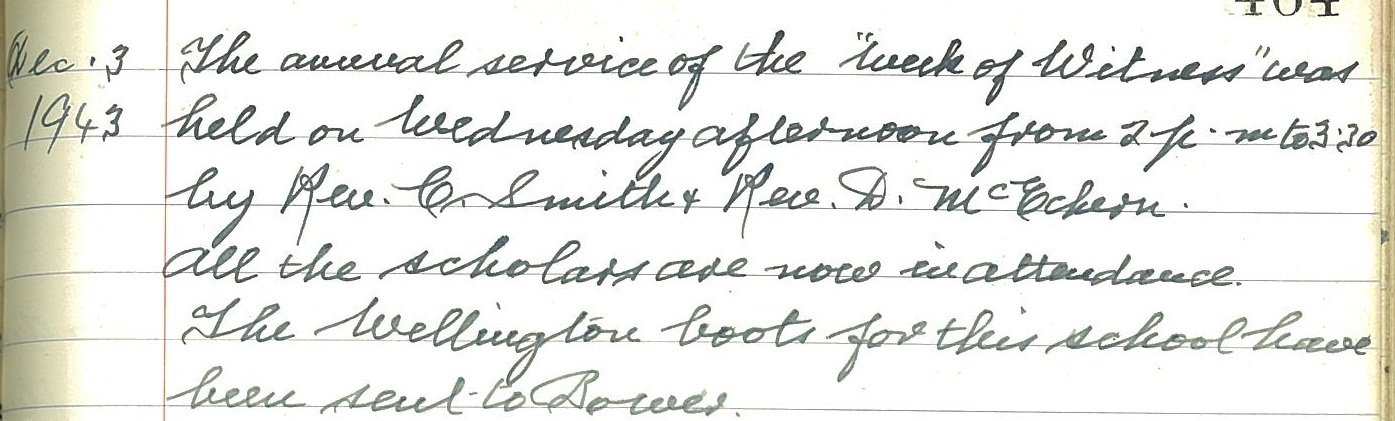 Dec. 3 The annual service of the "Week of Witness" was
1943 held on Wednesday afternoon from 2 p.m to 3.30
by Rev. C. Smith & Rev. D. McEchern.
All the scholars are now in attendance.
The Wellington boots for this school have
been sent to Bower.